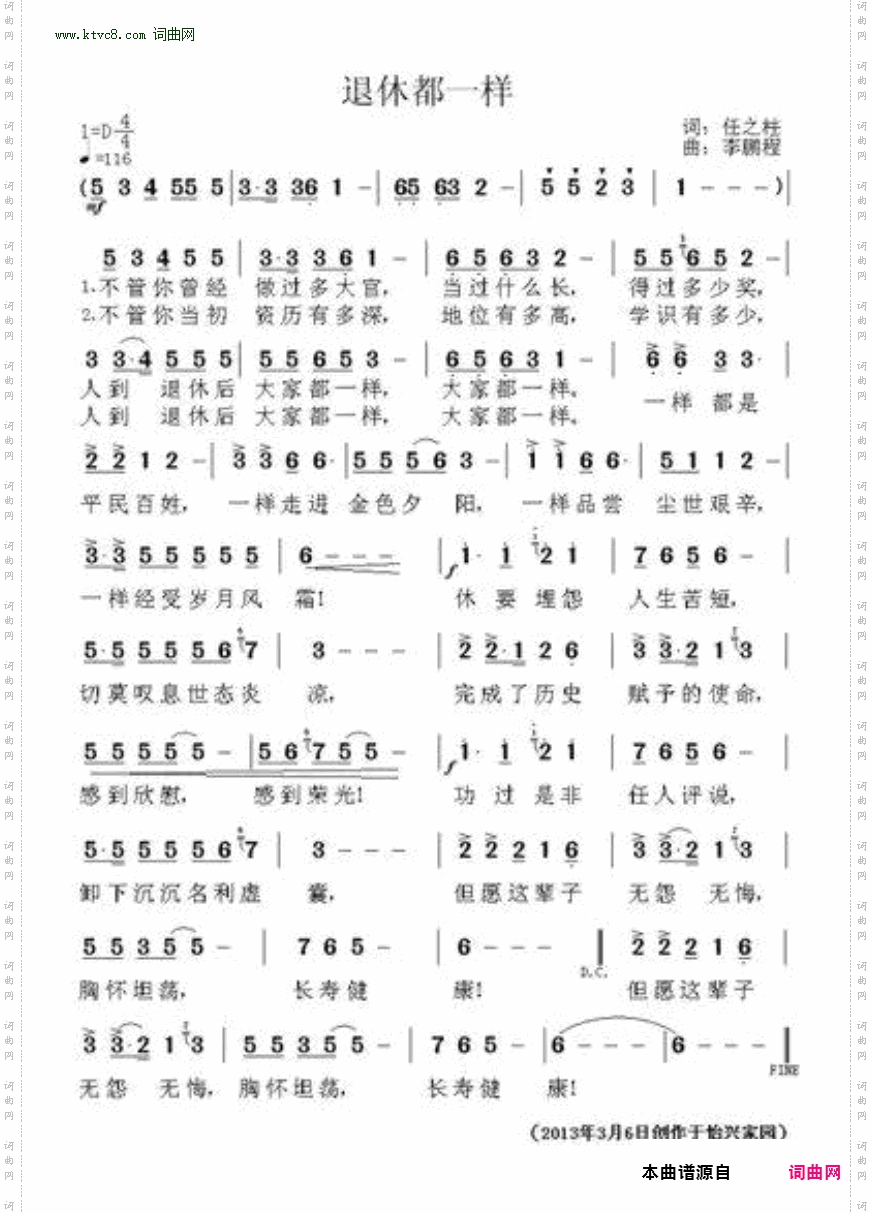 www.ktvc8.com 词曲网
退休都一样
1=D 4/4
词：任之柱
♩=116
曲：李鹏程
(5 3 4 55 5 | 3·3 36 1 - | 65 63 2 - | 5 5 2 3 | 1 - - - )|
mf
5 3 4 5 5 | 3·3 3 6 1 - | 6 5 6 3 2 - | 5 5 6 5 2 - |
1.不管你曾经 做过多大官， 当过什么长， 得过多少奖，
2.不管你当初 资历有多深， 地位有多高， 学识有多少，
3 3·4 5 5 5 | 5 5 6 5 3 - | 6 5 6 3 1 - | 6 6 3 3· |
人到 退休后 大家都一样， 大家都一样。 一样 都是
人到 退休后 大家都一样， 大家都一样。
2 2 1 2 - | 3 3 6 6· | 5 5 5 6 3 - | 1 1 6 6· | 5 1 1 2 - |
平民百姓， 一样走进 金色夕 阳， 一样品尝 尘世艰辛，
3·3 5 5 5 5 5 | 6 - - - | f 1· 1 2 1 | 7 6 5 6 - |
一样经受岁月风 霜！ 休要埋怨 人生苦短，
5·5 5 5 5 6 7 | 3 - - - | 2 2·1 2 6 | 3 3·2 1 3 |
切莫叹息世态炎 凉， 完成了历史 赋予的使命，
5 5 5 5 5 - | 5 6 7 5 5 - | f 1· 1 2 1 | 7 6 5 6 - |
感到欣慰， 感到荣光！ 功过是非 任人评说，
5·5 5 5 5 6 7 | 3 - - - | 2 2 2 1 6 | 3 3·2 1 3 |
卸下沉沉名利虚 囊， 但愿这辈子 无怨 无悔，
5 5 3 5 5 - | 7 6 5 - | 6 - - - | 2 2 2 1 6 |
D.C.
胸怀坦荡， 长寿健 康！ 但愿这辈子
3 3·2 1 3 | 5 5 3 5 5 - | 7 6 5 - | 6 - - - | 6 - - - |
FINE
无怨 无悔， 胸怀坦荡， 长寿健 康！
（2013年3月6日创作于怡兴家园）
本曲谱源自 词曲网